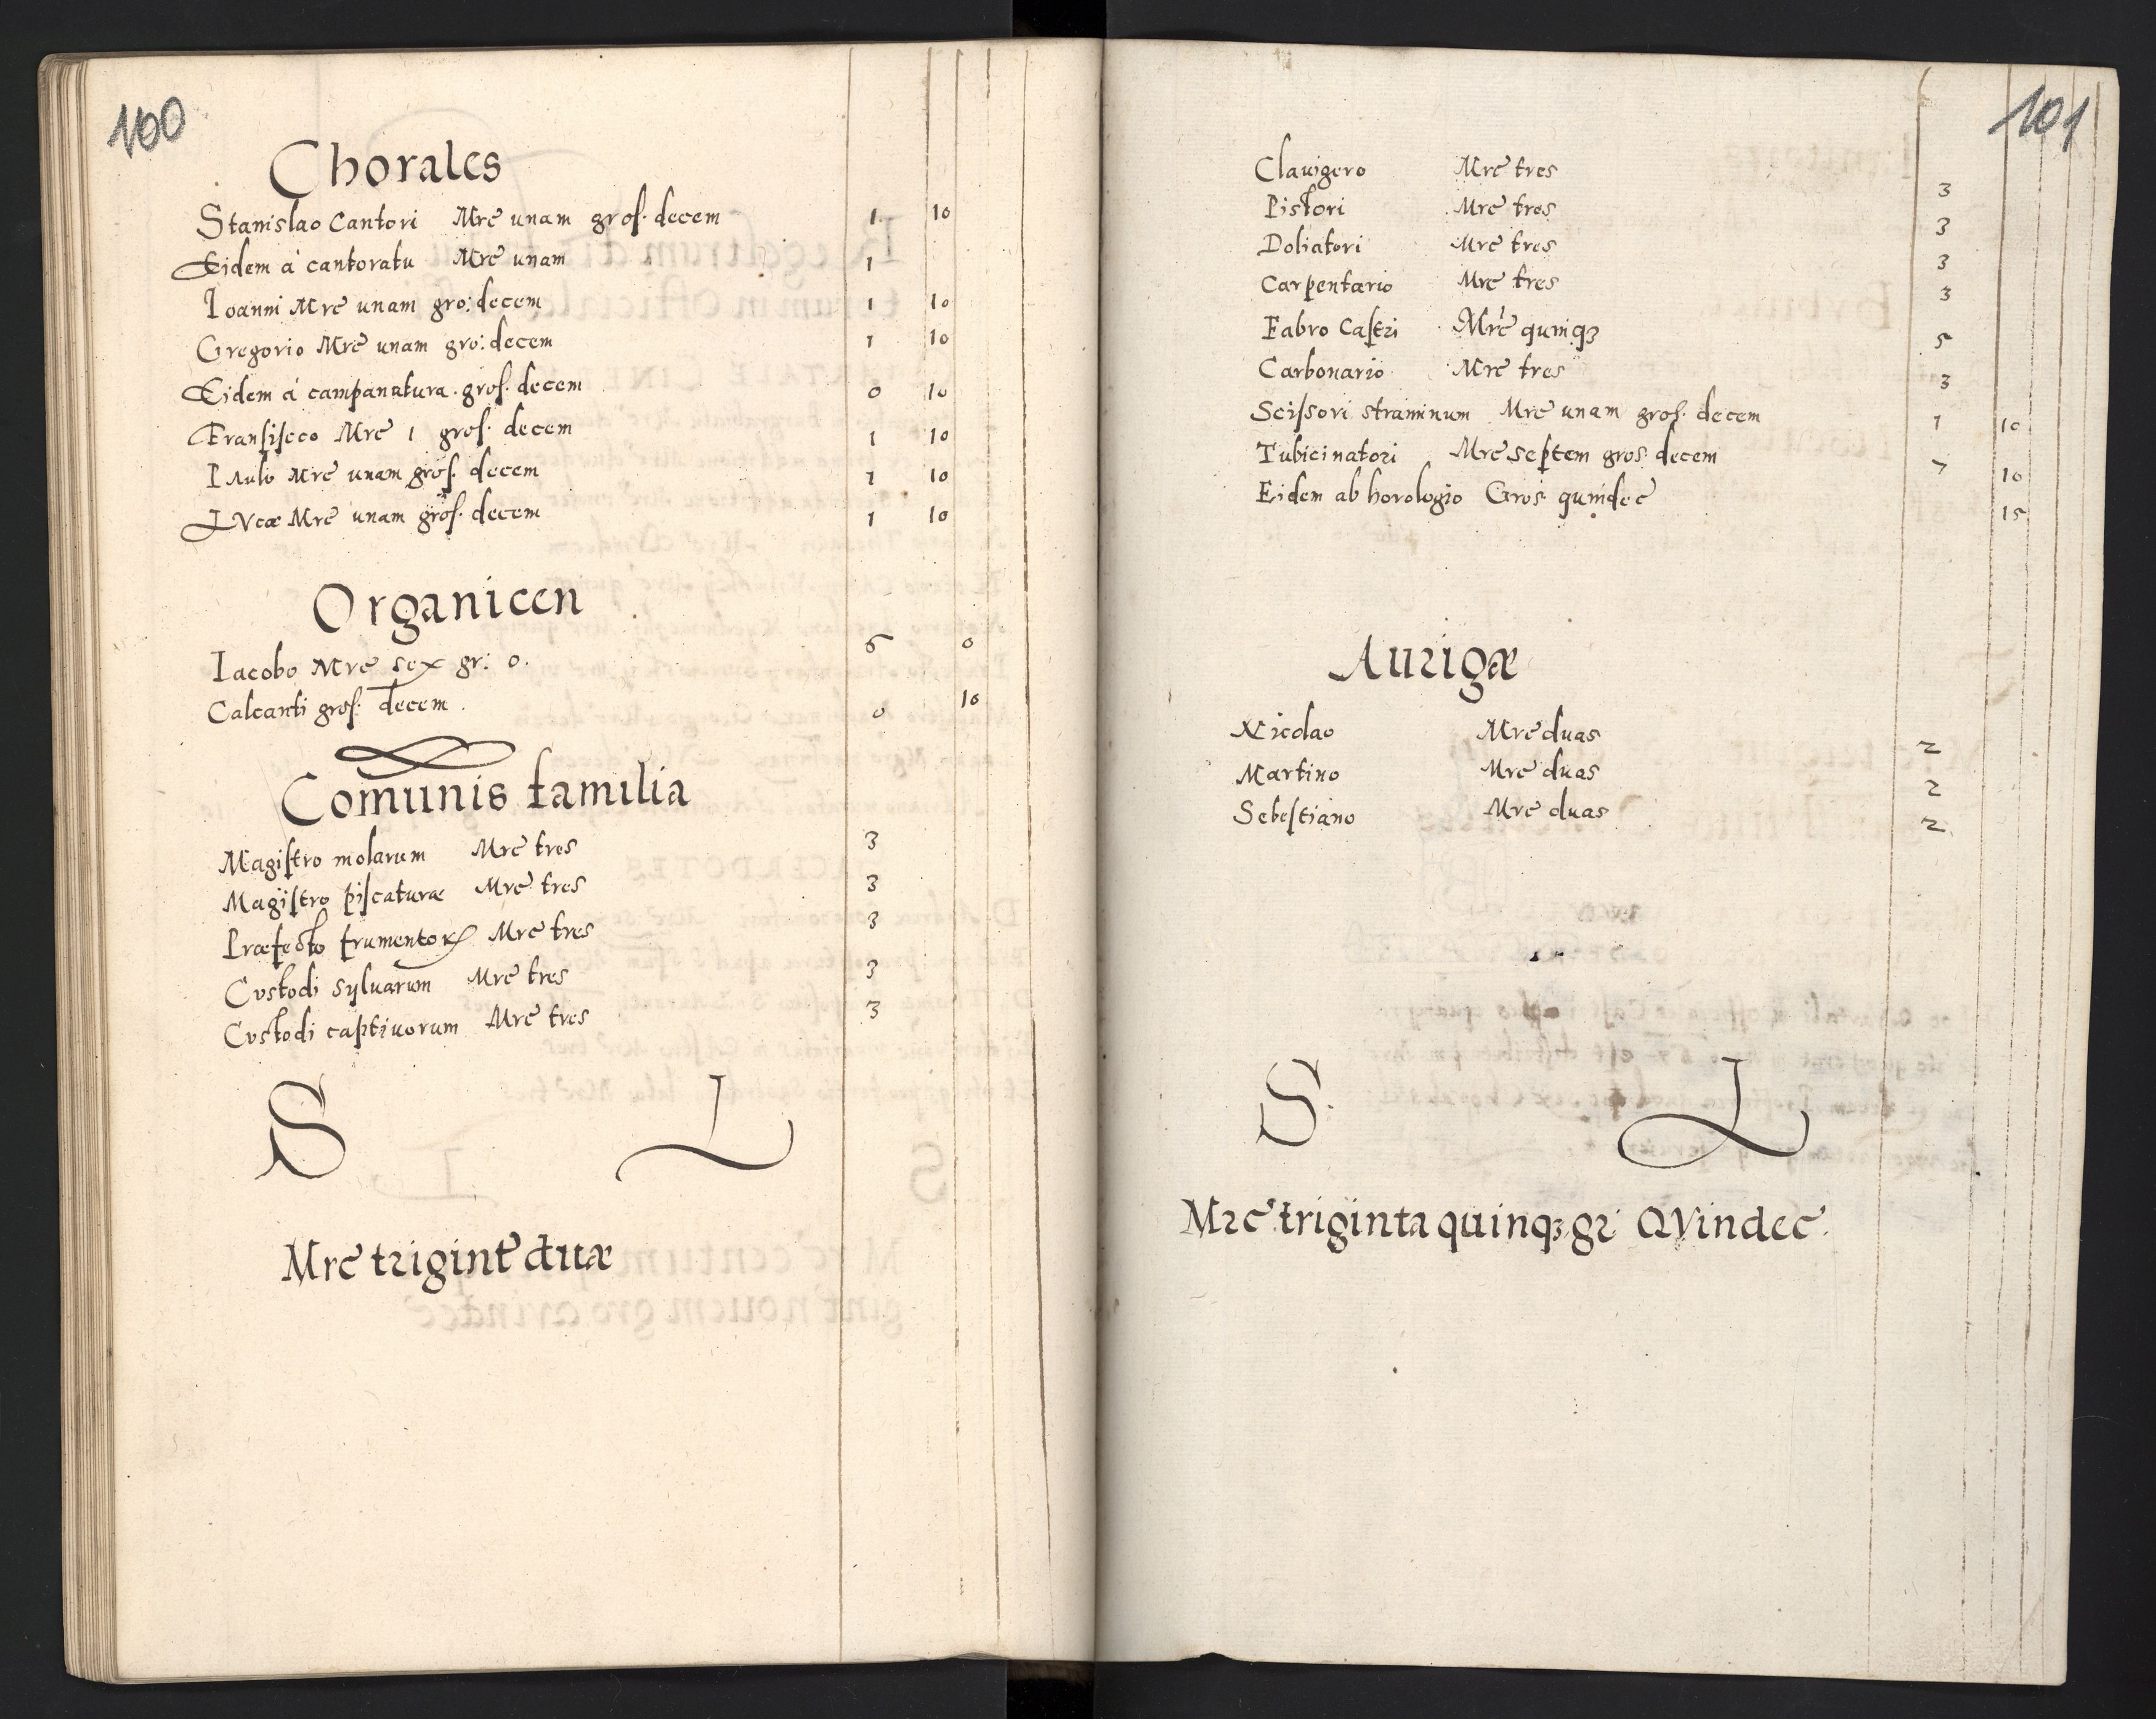 100
Chorales
Stanislao Cantori Mrē unam groſ. decem 1 10
Eidem á cantoratu Mrē unam 1
Ioanni Mrē unam gro: decem 1 10
Gregorio Mrē unam gro: decem 1 10
Eidem á campanatura. groſ. decem 0 10
Franſiſco Mrē 1 groſ. decem 1 10
PAulo Mrē unam groſ. decem 1 10
LVcæ Mrē unam groſ. decem 1 10
Organicen
Iacobo Mrē sex gr: 0. 6 0
Calcanti groſ. decem. 0 10
Comunis familia
Magiſtro molarum Mrē tres 3
Magiſtro piſcaturæ Mrē tres 3
Præfecto frumentoꝝ Mrē tres 3
Cvstodi sylvarum Mrē tres 3
Cvstodi captiuorum Mrē tres 3
S L
Mrē trigint̄ duæ
101
Clavigero Mrē tres 3
Pistori Mrē tres 3
Doliatori Mrē tres 3
Carpentario Mrē tres 3
Fabro Caſtri Mrē quinqꝫ 5
Carbonario Mrē tres 3
Sciſsori straminum Mrē unam groſ. decem 1 10
Tubicinatori Mrē septem gros. decem 7 10
Eidem ab horologio Gros quindeč 15
Aurigæ
Nicolao Mrē duas 2
Martino Mrē duas 2
Sebeſtiano Mrē duas 2
S. L
Mrē triginta quinqꝫ gr QVindeč.